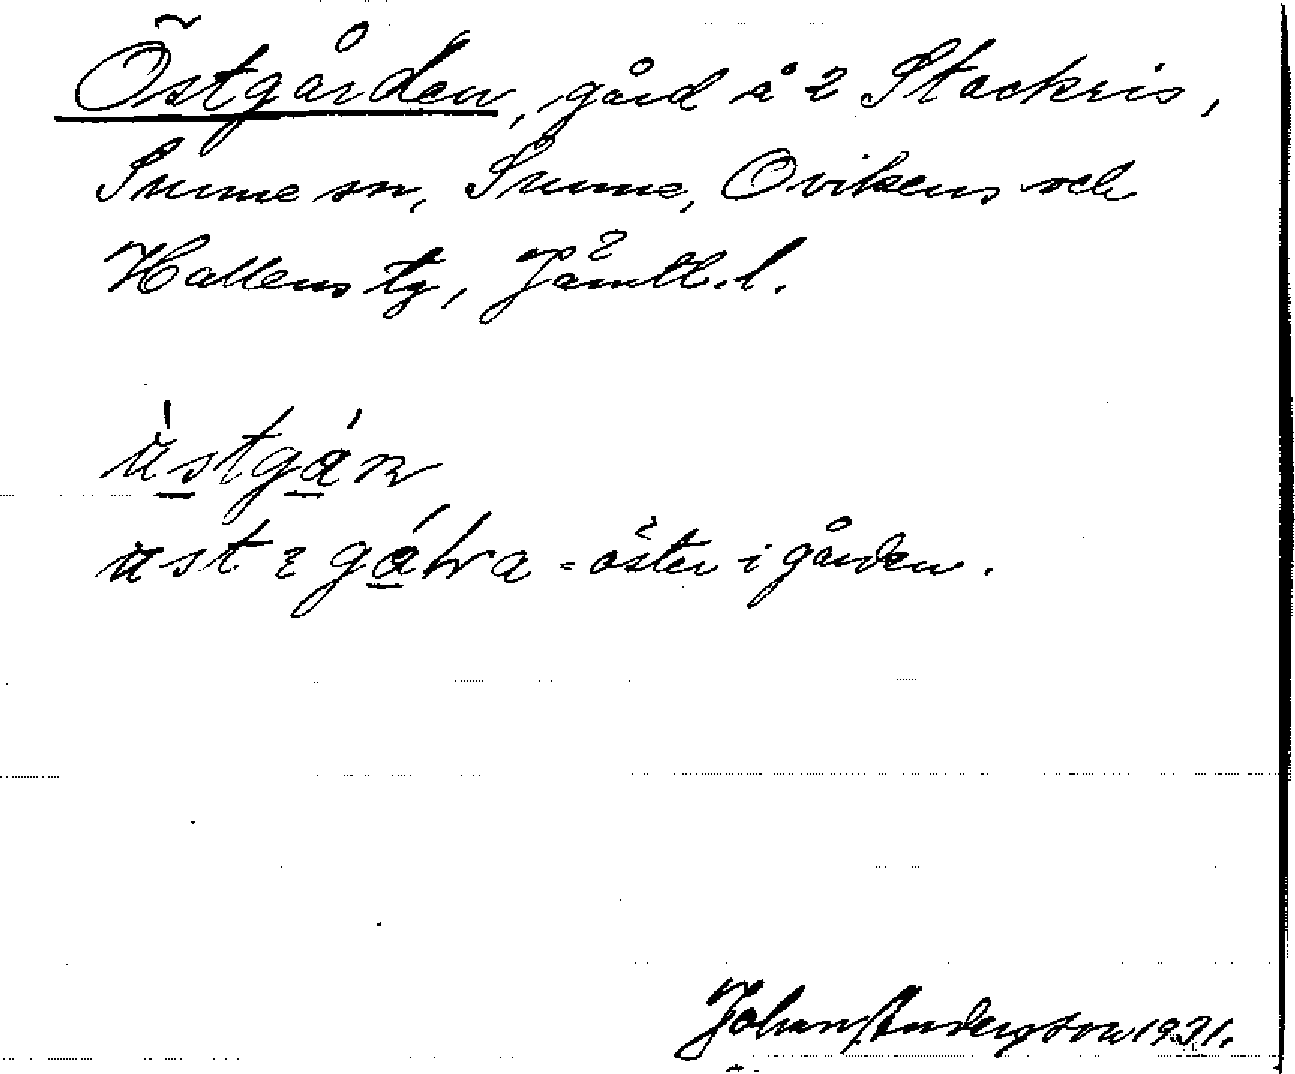 Östgården, gård å 2 Stockris,
Sunne sn, Sunne, Ovikens och
Hallens tg, Jämtl. l.
öster i gården.
Johan Anderson 1931.